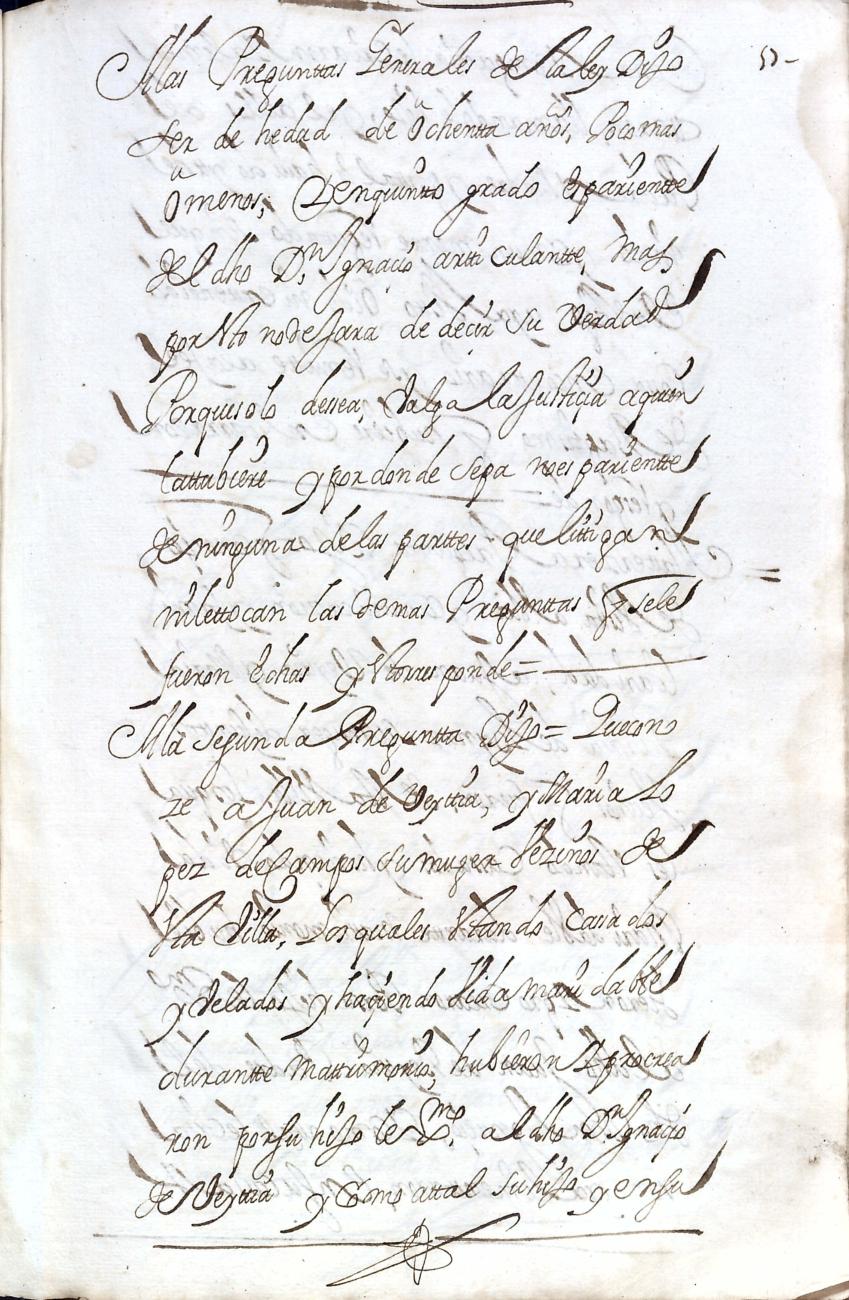 A las Preguntas Generales de la ley Dijo
ser de hedad de ochentta años, Poco mas
o menos, Y en quintto grado es parientte
del dho Dn Ygnacio artticulantte, mas
por Esto no dejara de decir su Verdad
Porque solo dessea, Valga la Justiçia a quien
la ttubiere y por donde sepa no es parientte
de ninguna de las parttes que littigan
ni le ttocan las demas Pregunttas q se le
fueron echas y Responde =
A la segunda Preguntta Dijo = Que cono
ze a Juan de Veyttia, y Maria Lo
pez de Campos su muger Vezinos de
Esta Villa, Los quales Estando casados
y Velados y haçiendo Vida maridable
durantte mattrimonio, hubieron y procrea
ron por su hijo lexmo. a el dho Dn Ygnaçio
de Veyttia y Como a ttal su hijo y en su